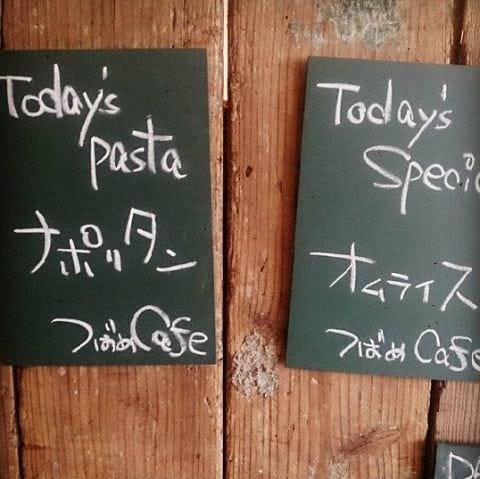 Today's
pasta
ナポリタン
つばめ Cafe
Today's
Speci
オムライス
つばめ Cafe